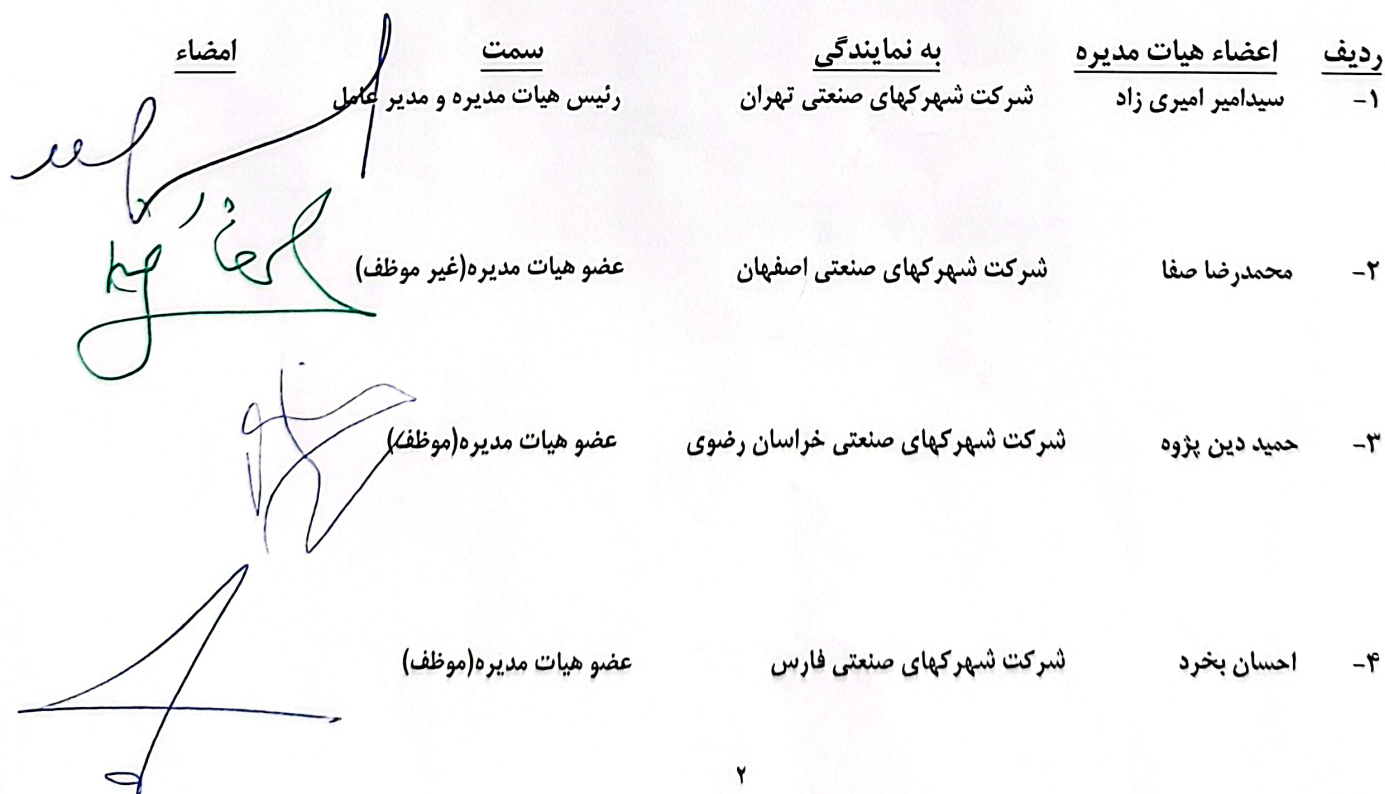 ردیف اعضاء هیات مدیره به نمایندگی سمت امضاء
۱- سیدامیر امیری زاد شرکت شهرکهای صنعتی تهران رئیس هیات مدیره و مدیر عامل
۲- محمدرضا صفا شرکت شهرکهای صنعتی اصفهان عضو هیات مدیره(غیر موظف)
۳- حمید دین پژوه شرکت شهرکهای صنعتی خراسان رضوی عضو هیات مدیره(موظف)
۴- احسان بخرد شرکت شهرکهای صنعتی فارس عضو هیات مدیره(موظف)
۲